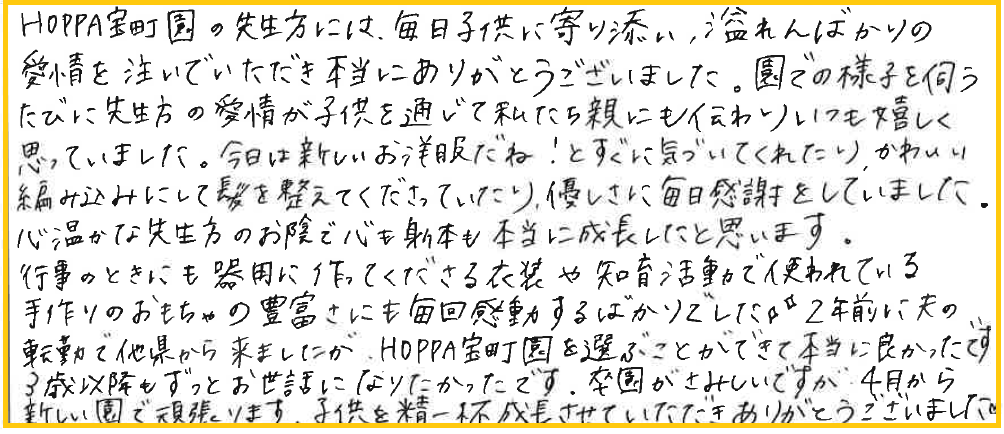 HOPPA宝町園の先生方には、毎日子供に寄り添い、溢れんばかりの
愛情を注いでいただき本当にありがとうございました。園での様子を伺う
たびに先生方の愛情が子供を通じて私たち親にも伝わりいつも嬉しく
思っていました。今日は新しいお洋服だね!とすぐに気づいてくれたり、かわいい
編み込みにして髪を整えてくださっていたり、優しさに毎日感謝をしていました。
心温かな先生方のお陰で心も身体も本当に成長したと思います。
行事のときにも器用に作ってくださる衣装や知育活動で使われている
手作りのおもちゃの豊富さにも毎回感動するばかりでした 2年前に夫の
転勤で他県から来ましたが、HOPPA宝町園を選ぶことができて本当に良かったです
3歳以降もずっとお世話になりたかったです。卒園がさみしいですが、4月から
新しい園で頑張ります。子供を精一杯成長させていただきありがとうございました